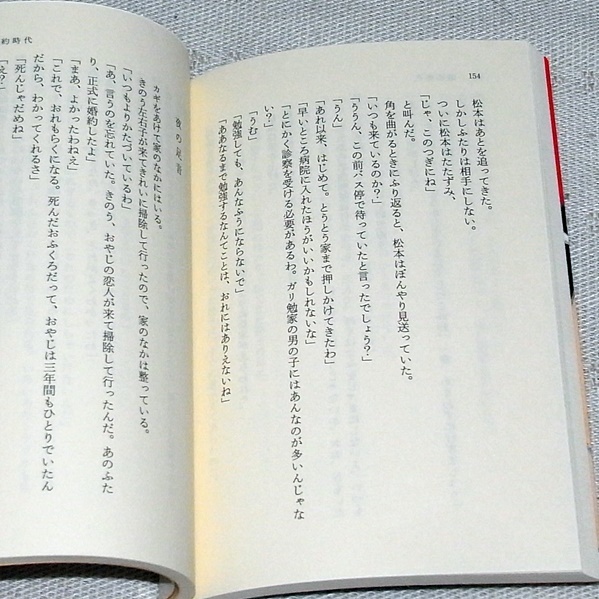 154
松本はあとを追ってきた。
しかしふたりは相手にしない。
ついに松本はたたずみ、
「じゃ、このつぎにね」
と叫んだ。
角を曲がるときにふり返ると、松本はぼんやり見送っていた。
「いつも来ているのか?」
「ううん、この前バス停で待っていたと言ったでしょう?」
「うん」
「あれ以来、はじめて。とうとう家まで押しかけてきたわ」
「早いところ病院に入れたほうがいいかもしれないな」
「とにかく診察を受ける必要があるわ。ガリ勉家の男の子にはあんなのが多いんじゃな
い?」
「うむ」
「勉強しても、あんなふうにならないで」
「ああなるまで勉強するなんてことは、おれにはありえないね」
約時代
カギをあけて家のなかにはいる。
きのう左右子が来てきれいに掃除して行ったので、家のなかは整っている。
「いつもよりかたづいているわ」
「あ、言うのを忘れていた。きのう、おやじの恋人が来て掃除して行ったんだ。あのふた
り、正式に婚約したよ」
「まあ、よかったわねえ」
「これで、おれもらくになる。死んだおふくろだって、おやじは三年間もひとりでいたん
だから、わかってくれるさ」
「死んじゃだめね」
「え?」